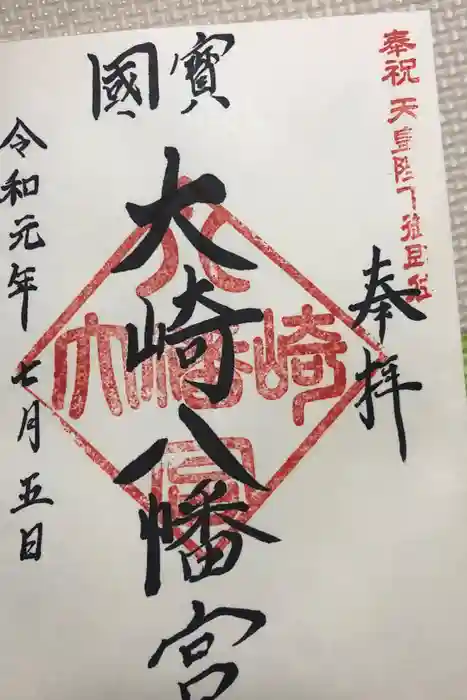 奉祝 天皇陛下御即位
奉拝
寳國
大崎八幡宮
八
大幡崎
宮
令和元年七月五日